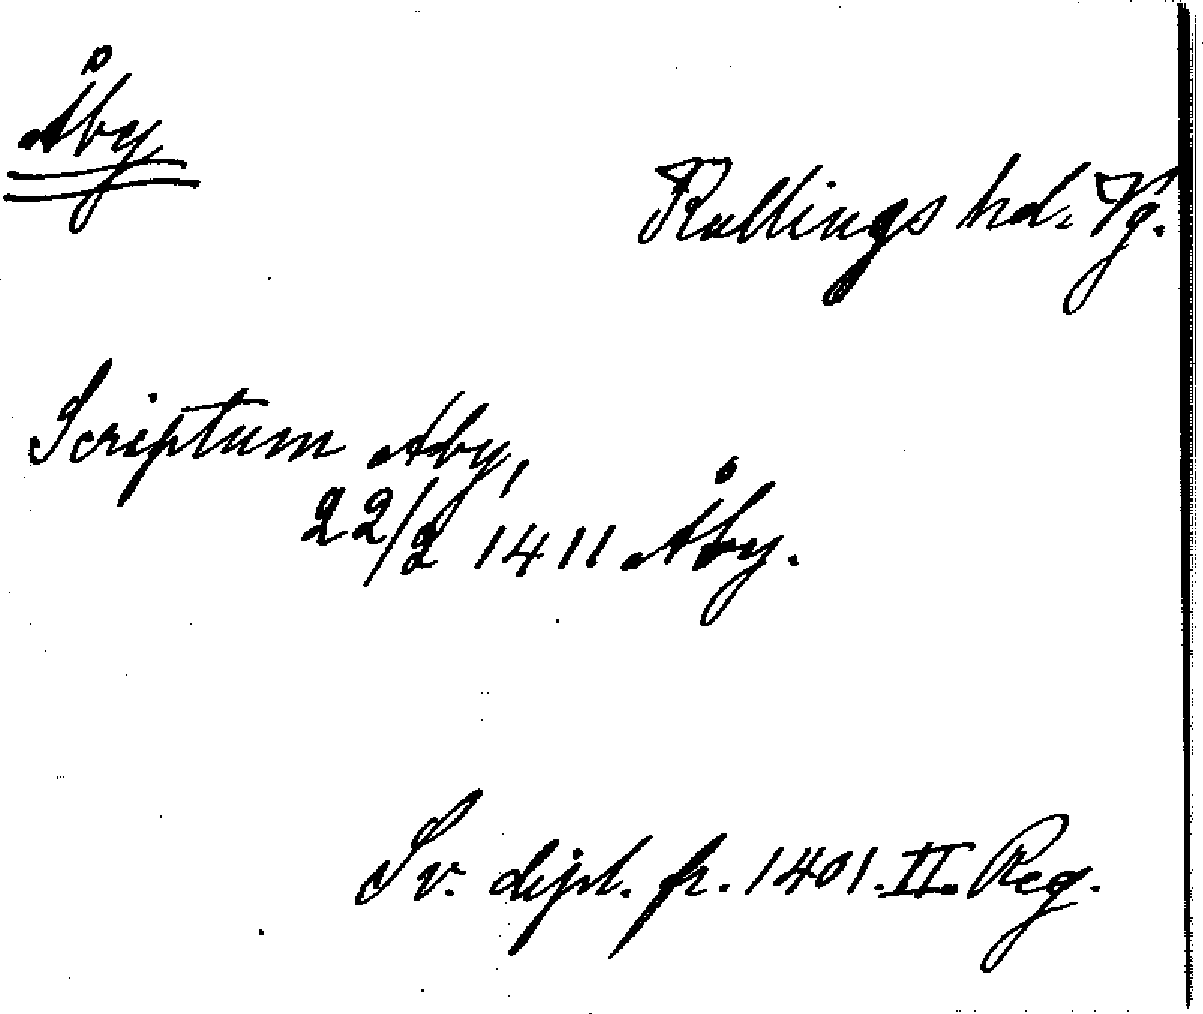 Åby
Kullings hd. Vg.
Scriptum Aby,
22/2 1411 Åby.
Sv. dipl. fr. 1401. II. Reg.